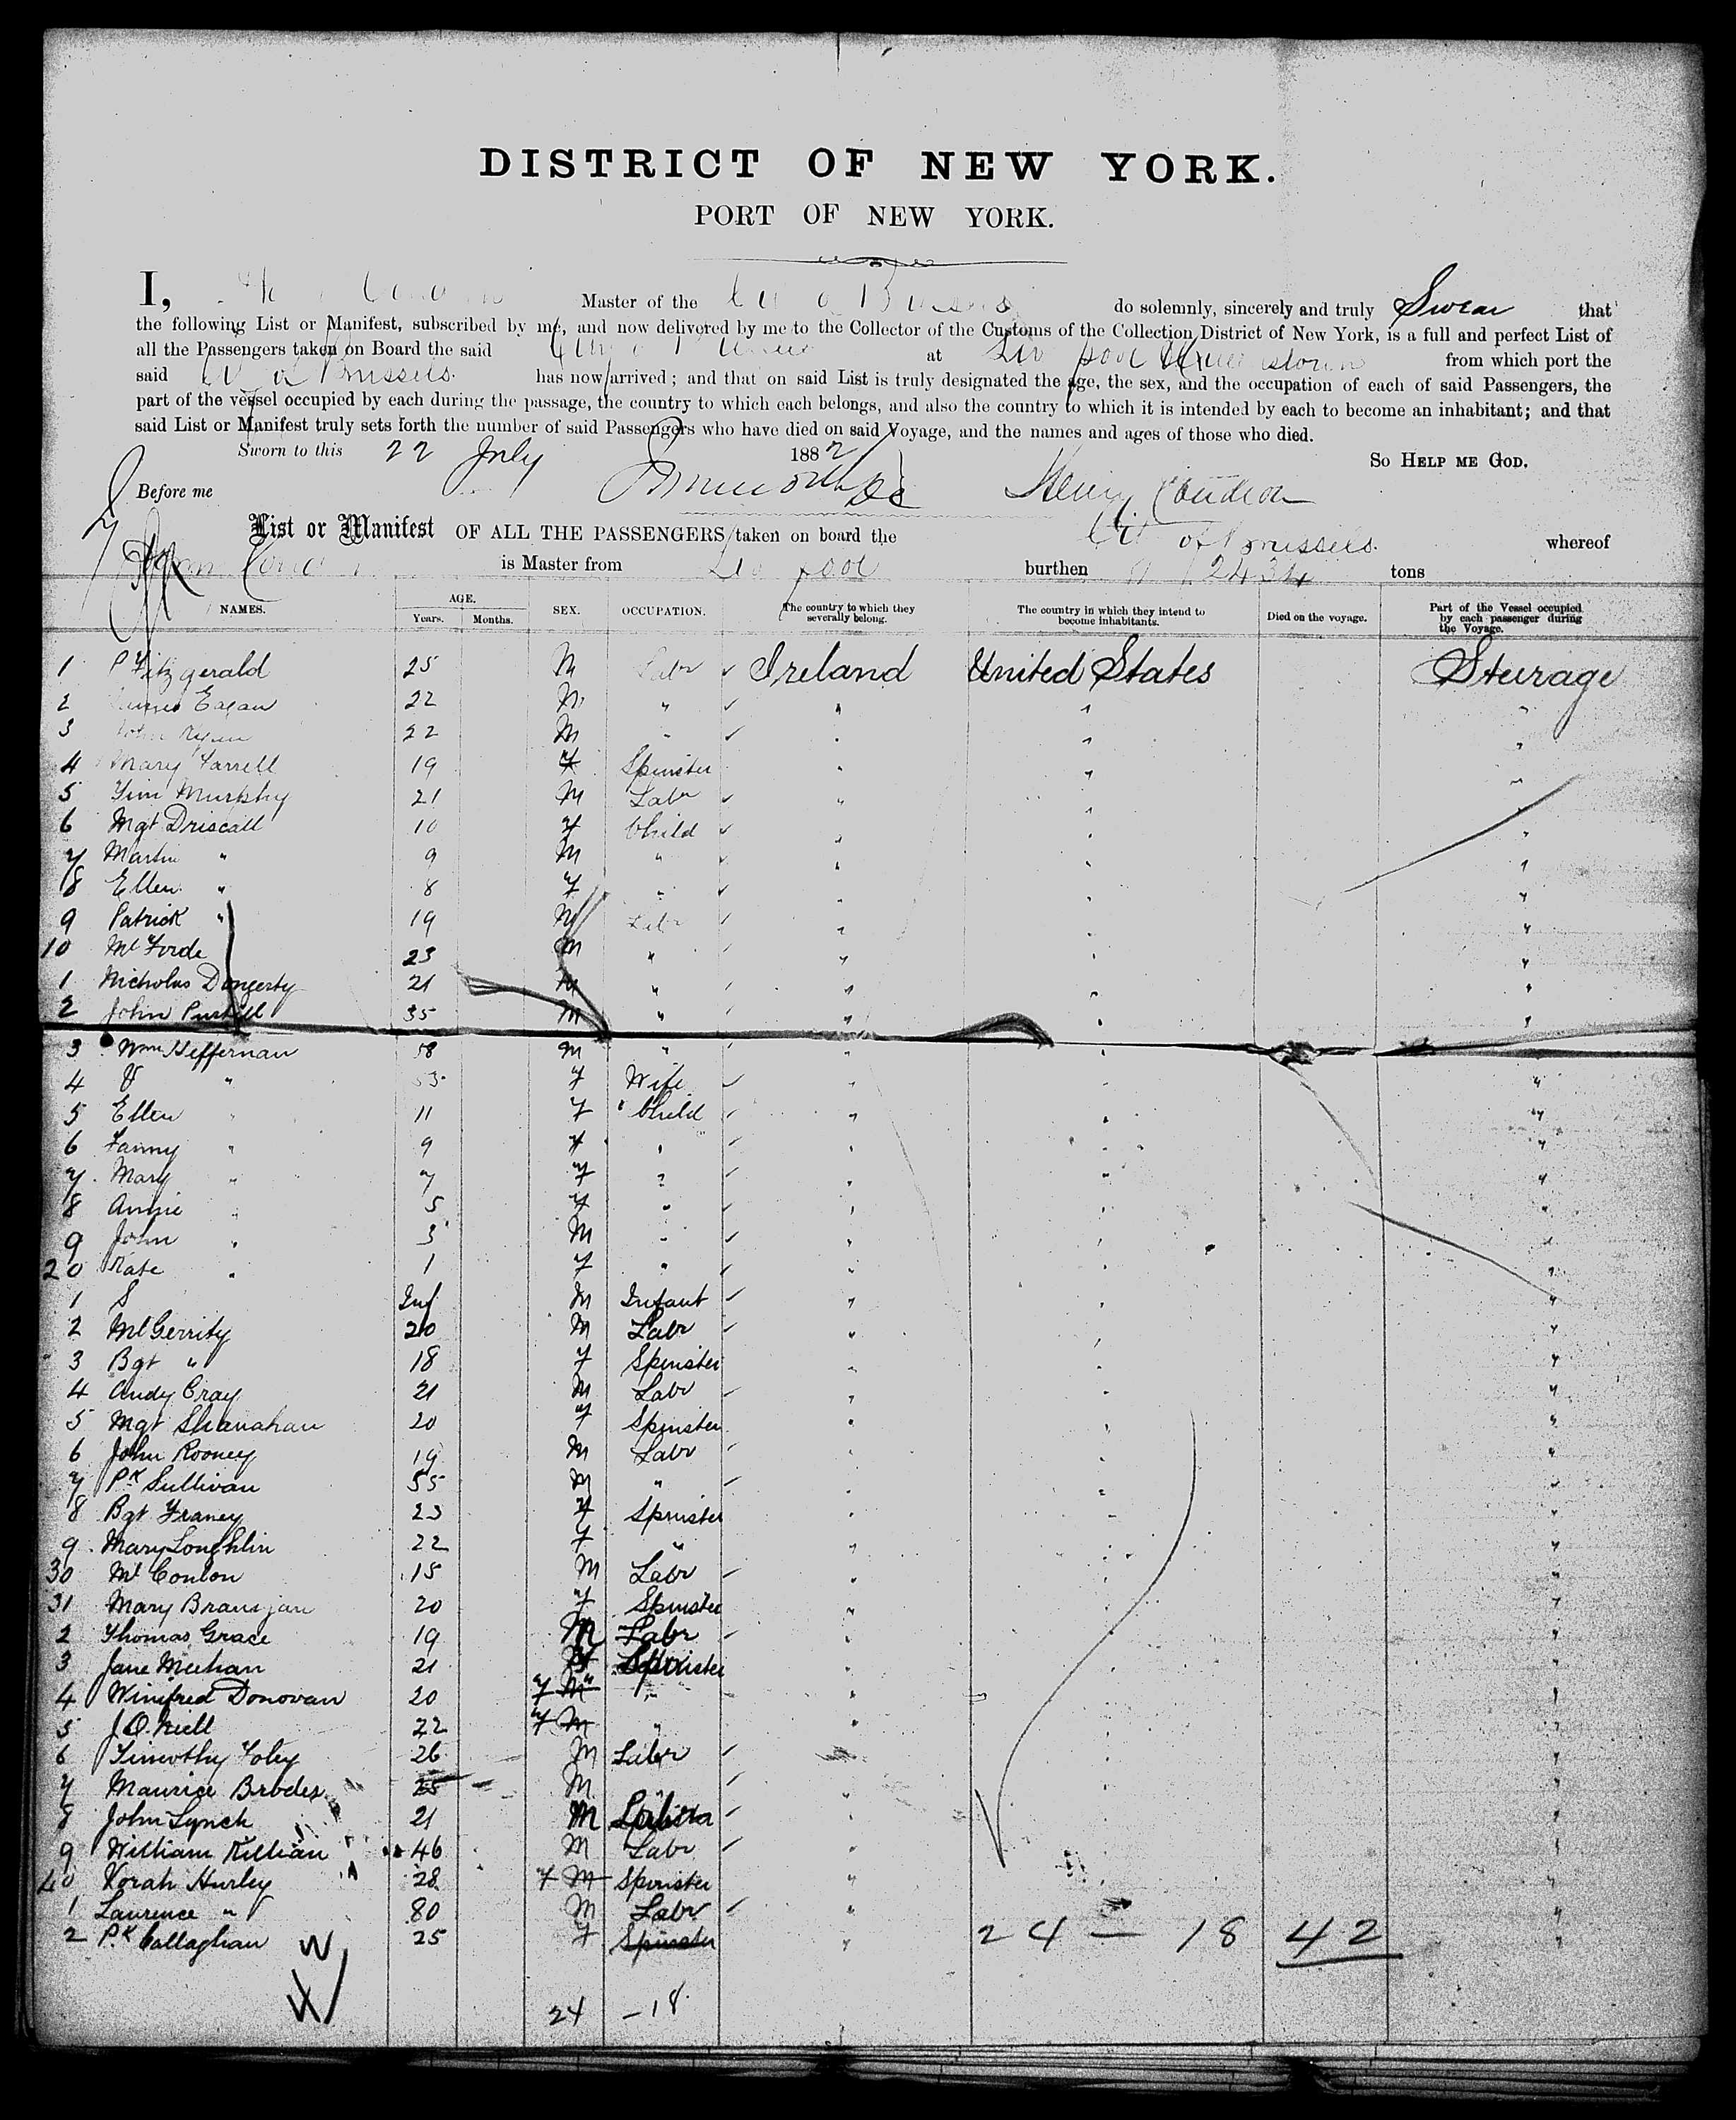 DISTRICT OF NEW YORK.
PORT OF NEW YORK.
I, Master of the do solemnly, sincerely and truly Swear that
the following List or Manifest, subscribed by me, and now delivered by me to the Collector of the Customs of the Collection District of New York, is a full and perfect List of
all the Passengers taken on Board the said at from which port the
said Brussels has now arrived; and that on said List is truly designated the age, the sex, and the occupation of each of said Passengers, the
part of the vessel occupied by each during the passage, the country to which each belongs, and also the country to which it is intended by each to become an inhabitant; and that
said List or Manifest truly sets forth the number of said Passengers who have died on said Voyage, and the names and ages of those who died.
Sworn to this 22 July 1882 So HELP ME GOD.
Before me Henry
List or Manifest OF ALL THE PASSENGERS taken on board the of Brussels. whereof
is Master from burthen 2434 tons
NAMES. AGE. Years. Months. SEX. OCCUPATION. The country to which they severally belong. The country in which they intend to become inhabitants. Died on the voyage. Part of the Vessel occupied by each passenger during the Voyage.
1 P Fitzgerald 25 M Labr Ireland United States Steerage
2 Eagan 22 M " " " "
3 22 M " " " "
4 Mary Farrell 19 F Spinster " " "
5 Tim Murphy 21 M Labr " " "
6 Mgt Driscall 10 F Child " " "
7 Martin " 9 M " " " "
8 Ellen " 8 F " " " "
9 Patrick " 19 M Labr " " "
10 Ml Forde 23 M " " " "
1 Nicholas 21 M " " " "
2 John Purtill 35 M " " " "
3 Wm Heffernan 58 M " " "
4 " 53 F Wife " " "
5 Ellen " 11 F Child " " "
6 Fanny " 9 F " " " "
7 Mary " 7 F " " " "
8 Annie " 5 F " " " "
9 John " 3 M " " " "
20 Kate " 1 F " " " "
1 S Inf M Infant " " "
2 Ml Gerrity 20 M Labr " " "
3 Bgt " 18 F Spinster " " "
4 Andy Cray 21 M Labr " " "
5 Mgt Shanahan 20 F Spinster " " "
6 John Rooney 19 M Labr " " "
7 Pk Sullivan 55 M " " " "
8 Bgt Franey 23 F Spinster " " "
9 Mary Loughlin 22 F " " " "
30 Ml Conlon 15 M Labr " " "
31 Mary 20 F Spinster " " "
2 Thomas Grace 19 M Labr " " "
3 Jane Meehan 21 F Spinster " " "
4 Winifred Donovan 20 F M " " " "
5 J O'Neill 22 F M " " " "
6 Timothy Foley 26 M Labr " " "
7 Maurice 25 M " " " "
8 John Lynch 21 M " " "
9 William Killian 46 M Labr " " "
40 Norah Hurley 28 F M Spinster " " "
1 Laurence " 80 M Labr " "
2 Pk Callaghan 25 F Spinster " 24 — 18 42 "
24 — 18